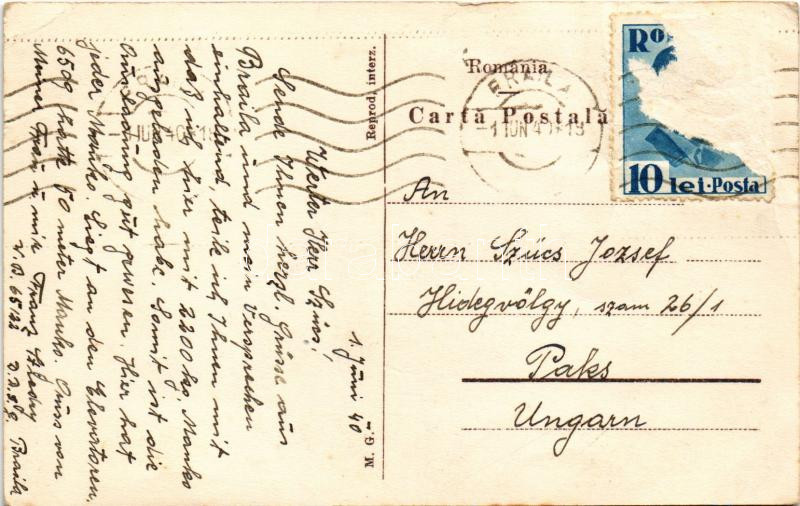 România
Cartă Postală
Ro
10 lei-Posta
BRAILA
-1 IUN 40 19
An
Herrn Szücs Jozsef
Hidegvölgy, szam 26/1
Paks
Ungarn
Reprod. interz.
M. G.
1. Juni 40
Werter Herr Szücs!
Sende Ihnen herzl. Grüsse aus
Braila und mein Versprechen
einhaltend, teile ich Ihnen mit
daß ich hier mit 2200 kg. Manko
ausgeladen habe. Somit ist die
Ausladung gut gewesen. Hier hat
jeder Manko. Liegt an den Elevatoren.
65 09 hatte 50 meter Manko. Gruss von
Meiner Frau u. mir Franz
Braila